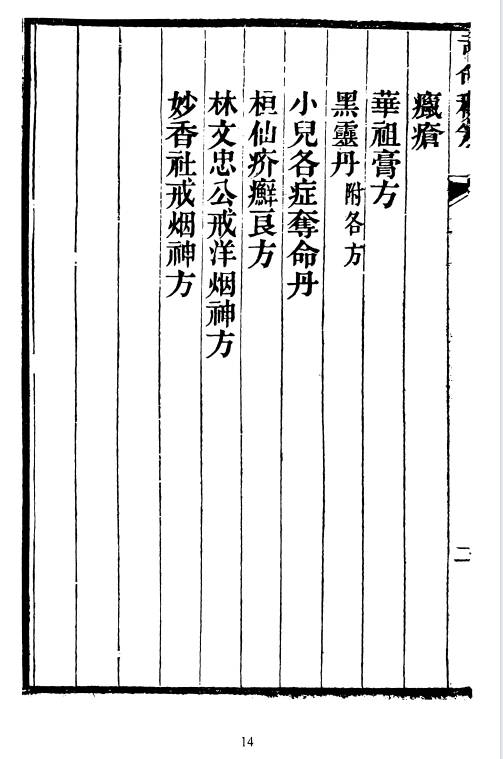 癘瘡
華祖膏方
黑靈丹 附各方
小兒各症奪命丹
桓仙疥癬良方
林文忠公戒洋烟神方
妙香社戒烟神方
二
14